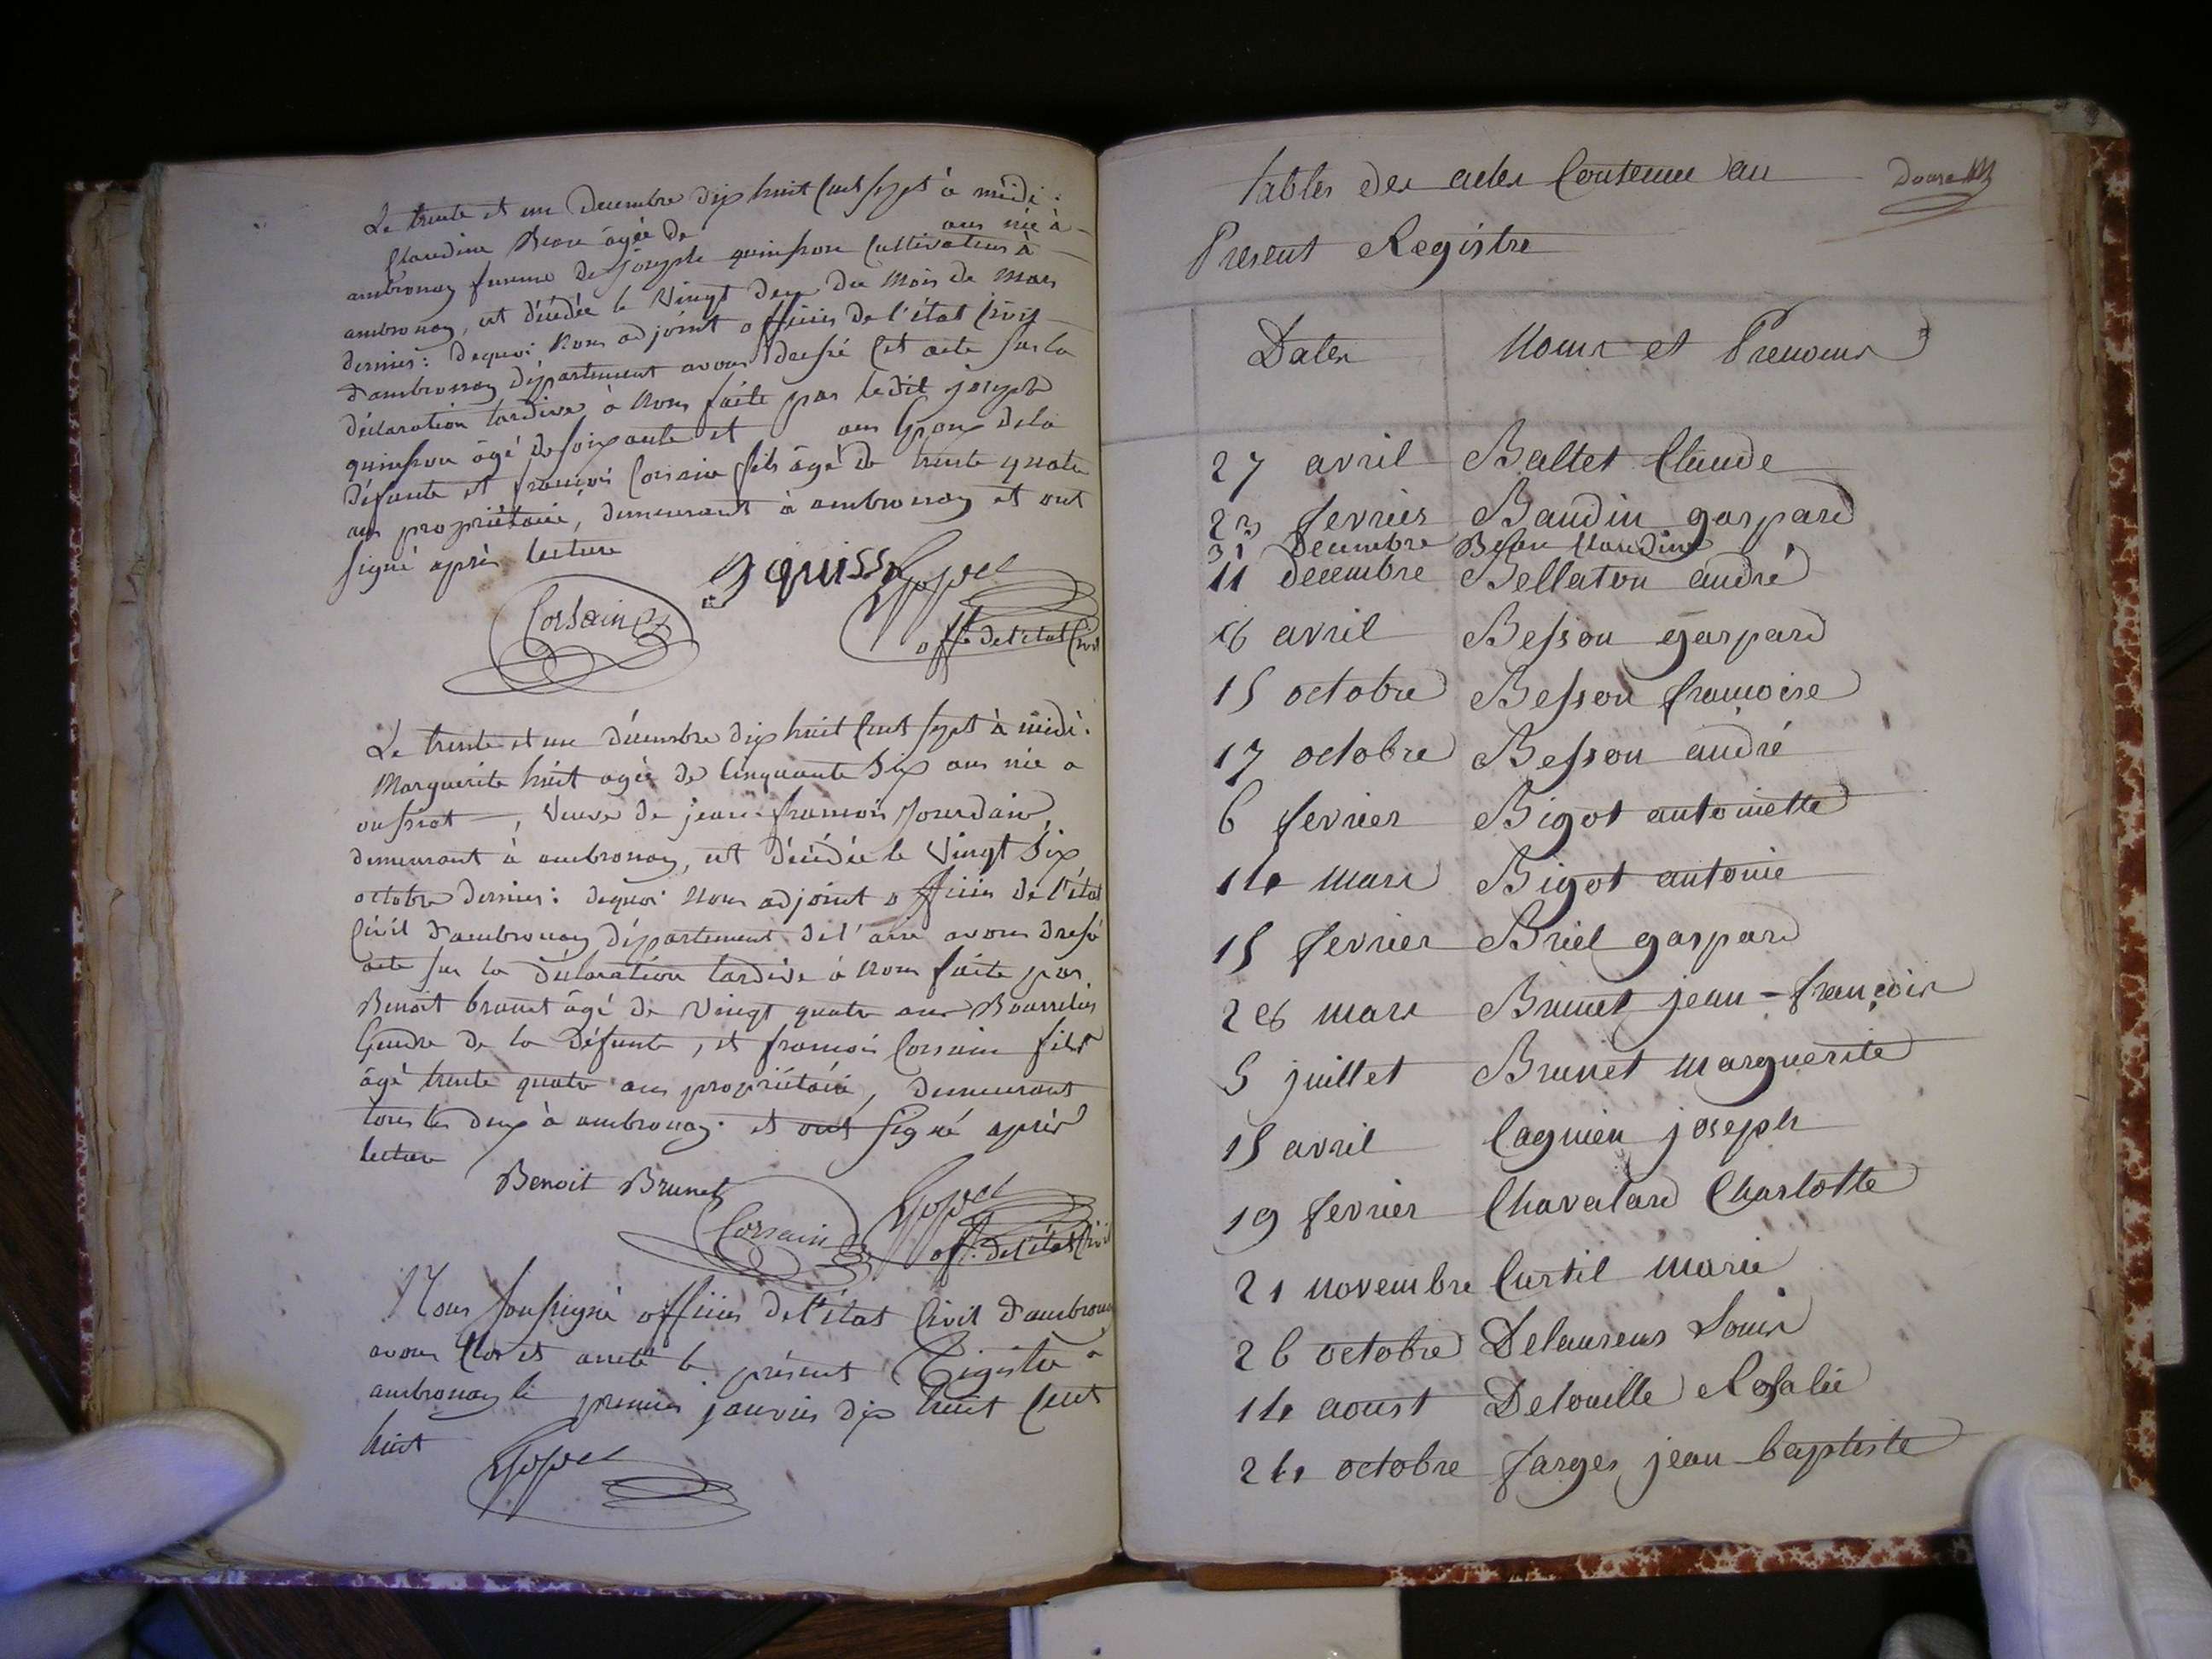 Le trente et un decembre dix huit cent sept à midi:
Claudine Beau âgée de ans née à
ambronay femme de joseph quinson cultivateur à
ambronay, est décédée le vingt deux du mois de mars
dernier: dequoi nous adjoint officier de l'état civil
d'ambronay département avons dressé cet acte sur la
déclaration tardive à nous faite par ledit joseph
quinson âgé de soixante et ans Epoux dela
défunte et françois Corsain fils âgé de trente quatre
ans propriétaire, demeurant à ambronay et ont
signé après lecture
Corsain
off. de l'état Civil
Le trente et un décembre dix huit cent sept à midi:
Marguerite huit agée de cinquante six ans née a
oussiat, veuve de jean-françois Jourdain,
demeurant à ambronay, est décédée le vingt six
octobre dernier: dequoi nous adjoint officier de l'état
Civil d'ambronay département de l'ain avons dressé
acte sur la déclaration tardive à nous faite par
Benoit brunet âgé de vingt quatre ans Bourrelier
Gendre de la défunte, et françois Corsain fils
âgé trente quatre ans propriétaire, demeurant
tous les deux à ambronay et ont signé après
lecture
Benoit Brunet
Corsain
off. de l'état Civil
Nous soussigné officier de l'état Civil d'ambronay
avons clos et arreté le présent Régistre à
ambronay le premier janvier dix huit cent
huit
tables des actes Contenue au
douze
Present Registre
Dates Noms et Prenoms
27 avril Baltet Claude
23 fevrier Baudin gaspard
31 decembre Beau Claudine
11 decembre Bellaton andré
16 avril Besson gaspard
15 octobre Besson françoise
17 octobre Besson andré
6 fevrier Bigot antoinette
14 mars Bigot antoine
15 fevrier Briel gaspard
26 mars Brunet jean-françois
5 juillet Brunet marguerite
15 avril Cagnien joseph
19 fevrier Chavalard Charlotte
21 novembre Curtil marie
26 octobre Delaurens Louis
14 aoust Delouille Rosalie
24 octobre farges jean baptiste